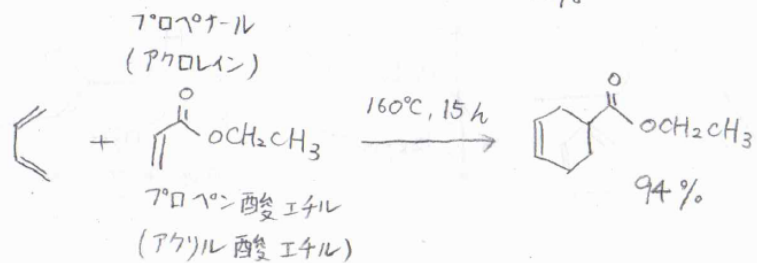 プロペナール
(アクロレイン)
+
O
OCH₂CH₃
160℃, 15h
O
OCH₂CH₃
94%
プロペン酸エチル
(アクリル酸エチル)